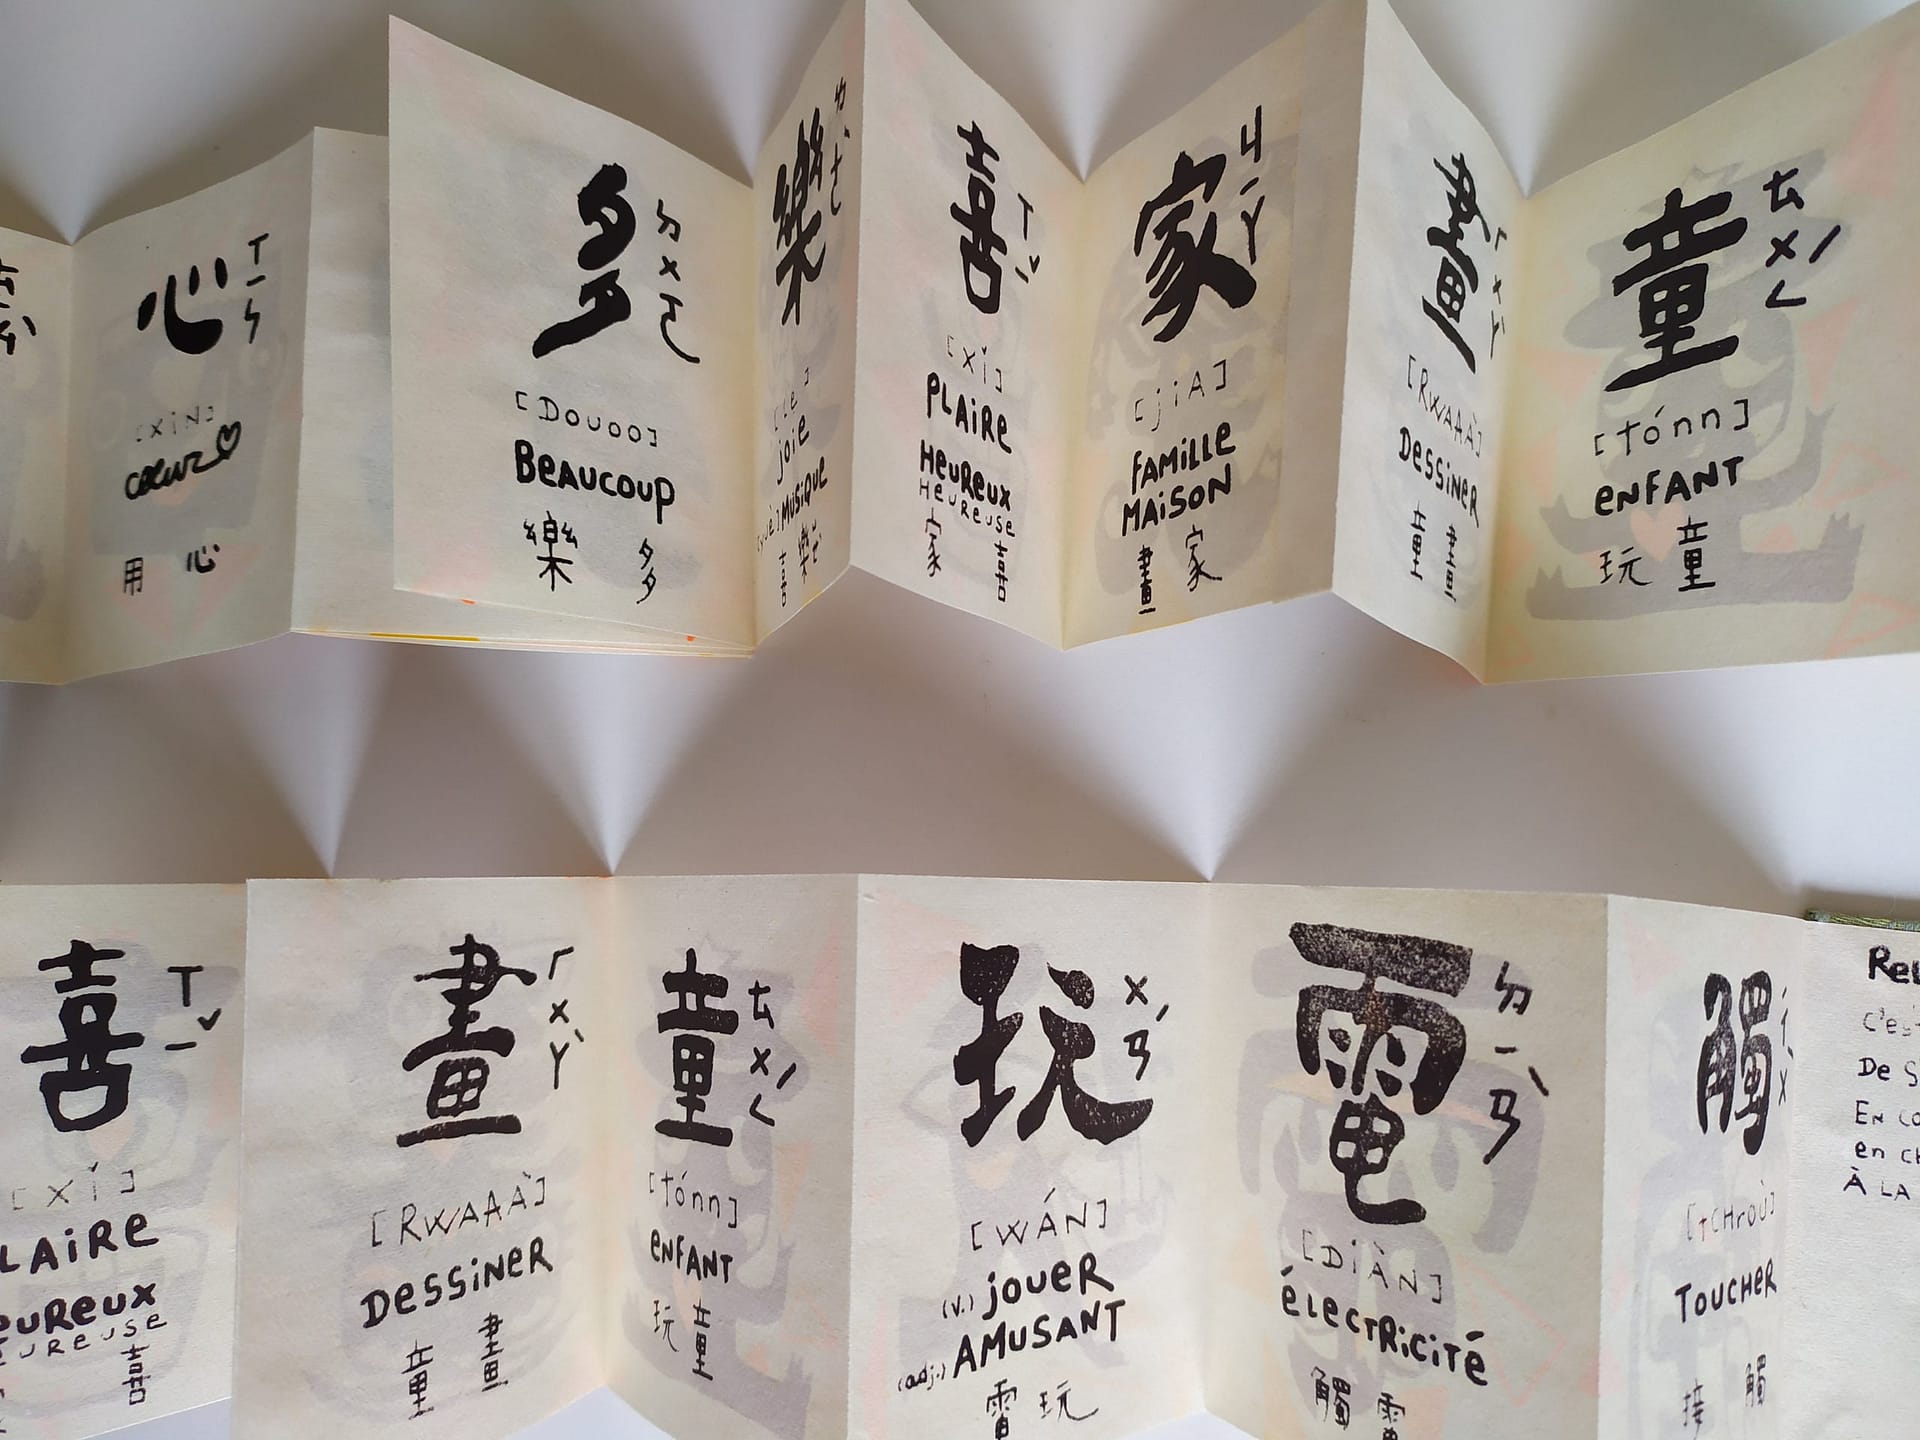 心
ㄒㄧㄣ
[xiN]
cœur
用 心
多
ㄉㄨㄛ
[Douoo]
Beaucoup
樂 多
樂
ㄌˋㄜ
[Le]
joie
[yuè] Musique
喜 樂
喜
ㄒㄧˇ
[xǐ]
PLAiRe
HeuReux
HeuReuse
家 喜
家
ㄐㄧㄚ
[jiA]
FAMiLLe
MAiSON
畫 家
畫
ㄏㄨㄚˋ
[RWAAÀ]
DeSSiNeR
童 畫
童
ㄊㄨㄥˊ
[tónn]
eNFANT
玩 童
喜
ㄒㄧˇ
[xǐ]
LAiRe
euReux
euReuse
喜
畫
ㄏㄨㄚˋ
[RWAAÀ]
DeSSiNeR
童 畫
童
ㄊㄨㄥˊ
[tónn]
eNFANT
玩 童
玩
ㄨㄢˊ
[WÁN]
(v.) joueR
(adj.) AMUSANT
電 玩
電
ㄉㄧㄢˋ
[DiÀN]
éLecTRiciTé
觸 電
觸
[tCHroù]
ToucHeR
接 觸
ReL
c'es
De S
EN co
en cH
À LA